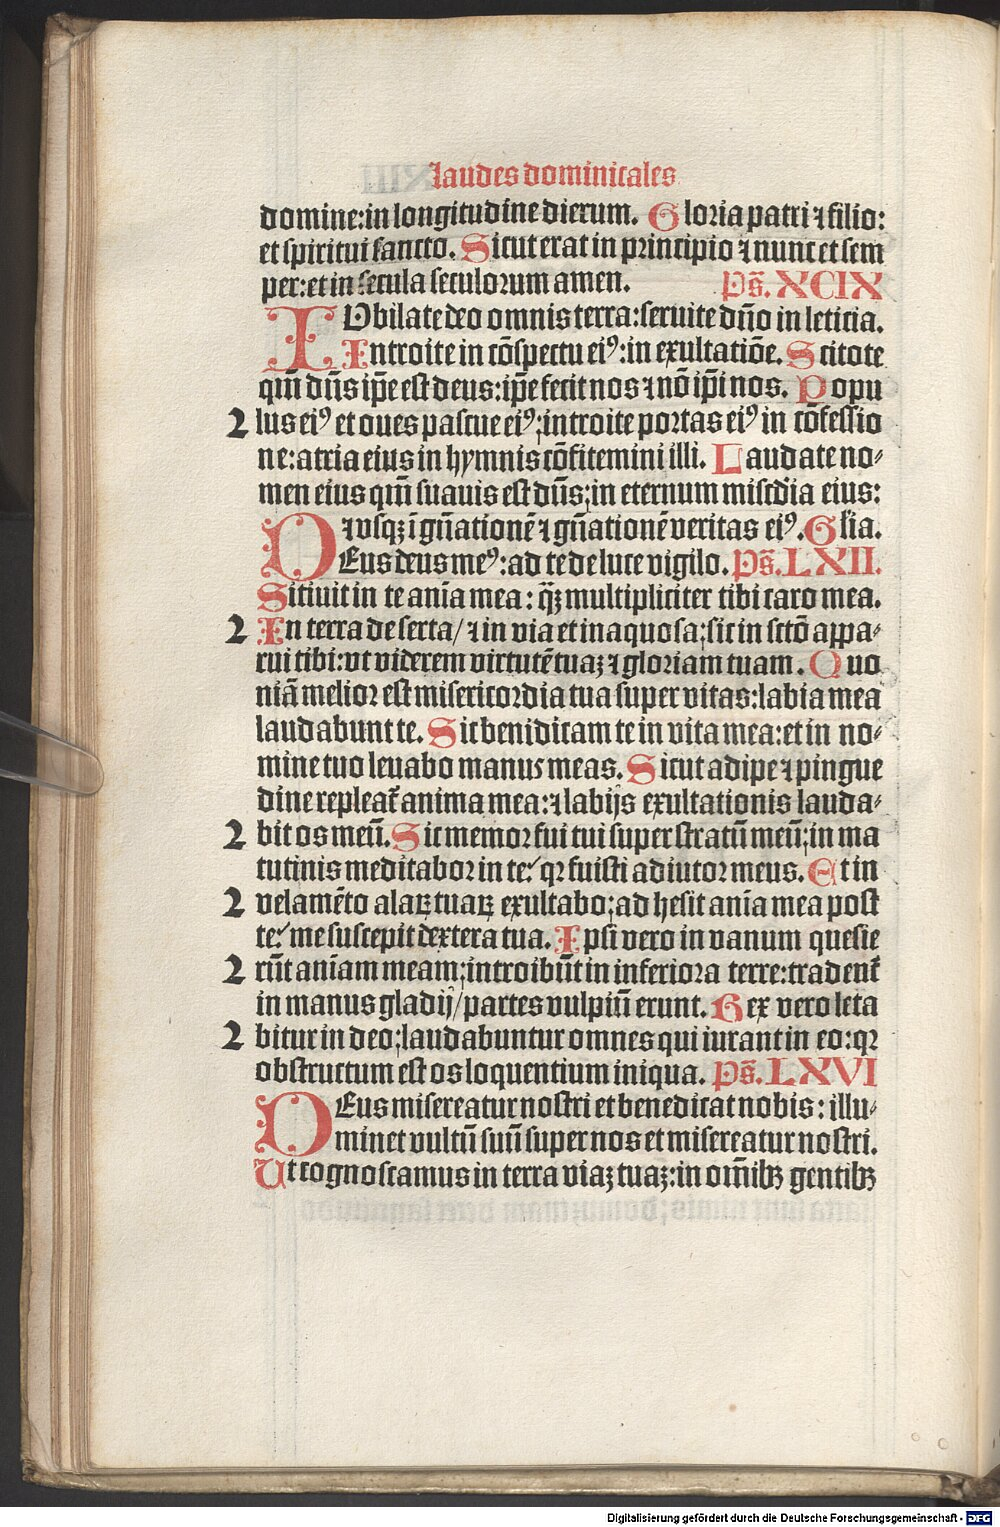 laudes dominicales
domine:in longitudine dierum. Gloria patri ⁊ filio:
et spiritui sancto. Sicut erat in principio ⁊ nunc et sem
per:et in secula seculorum amen. Ps̄. XCIX
IObilate deo omnis terra:seruite dn̄o in leticia.
Introite in cōspectu eiꝰ:in exultatiōe. Scitote
qm̄ dn̄s ip̄e est deus:ip̄e fecit nos ⁊ nō ip̄i nos. Popu
2 lus eiꝰ et oues pascue eiꝰ;introite portas eiꝰ in cōfessio
ne:atria eius in hymnis cōfitemini illi. Laudate no⸗
men eius qm̄ suauis est dn̄s;in eternum miscd̄ia eius:
⁊ vsqꝫ ī gn̄ationē ⁊ gn̄ationē veritas eiꝰ. Gl̄ia.
DEus deus meꝰ:ad te de luce vigilo. Ps̄. LXII.
Sitiuit in te anīa mea: q̄ꝫ multipliciter tibi caro mea.
2 In terra deserta/ ⁊ in via et inaquosa;sic in sctō appa⸗
rui tibi:vt viderem virtutē tuaꝫ ⁊ gloriam tuam. Quo
niā melior est misericordia tua super vitas:labia mea
laudabunt te. Sic benidicam te in vita mea:et in no⸗
mine tuo leuabo manus meas. Sicut adipe ⁊ pingue
dine repleat̄ anima mea:⁊ labijs exultationis lauda⸗
2 bit os meū. Sic memor fui tui super stratū meū;in ma
tutinis meditabor in te:́ qꝛ fuisti adiutor meus. Et in
2 velamēto alaꝝ tuaꝝ exultabo;adhesit anīa mea post
te:́ me suscepit dextera tua. Ipsi vero in vanum quesie
2 rūt anīam meam;introibūt in inferiora terre:tradent̄
in manus gladij/partes vulpiū erunt. Rex vero leta
2 bitur in deo;laudabuntur omnes qui iurant in eo:qꝛ
obstructum est os loquentium iniqua. Ps̄. LXVI
DEus misereatur nostri et benedicat nobis: illu⸗
minet vultū suū super nos et misereatur nostri.
Ut cognoscamus in terra viaꝫ tuaꝫ:in om̄ibꝫ gentibꝫ
Digitalisierung gefördert durch die Deutsche Forschungsgemeinschaft - DFG